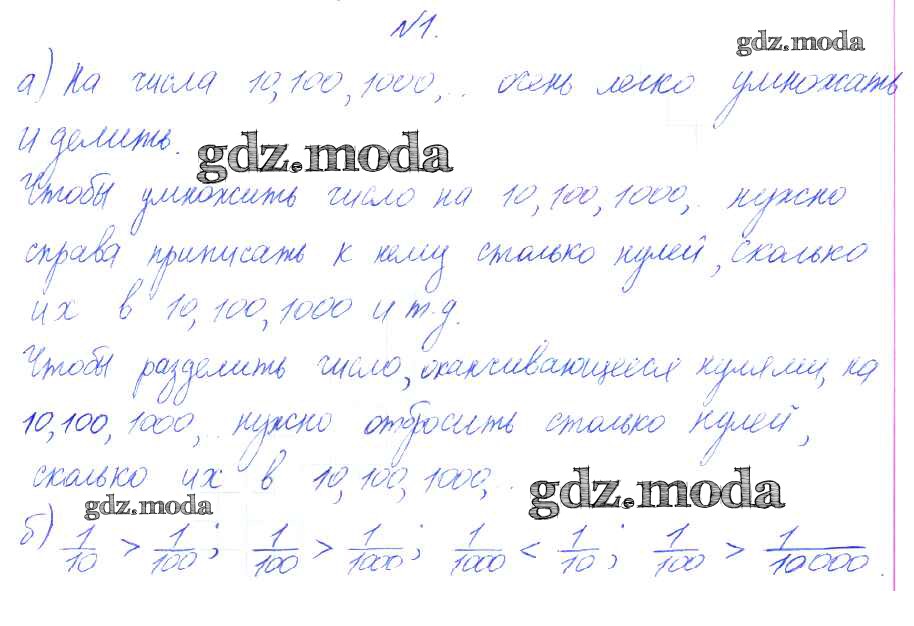 №1.
gdz.moda
а) На числа 10, 100, 1000,.. очень легко умножать
и делить.
gdz.moda
Чтобы умножить число на 10, 100, 1000,. нужно
справа приписать к нему столько нулей, сколько
их в 10, 100, 1000 и т.д.
Чтобы разделить число, оканчивающееся нулями, на
10, 100, 1000,. нужно отбросить столько нулей,
сколько их в 10, 100, 1000,..
gdz.moda
gdz.moda
б) 1/10 > 1/100; 1/100 > 1/1000; 1/1000 < 1/10; 1/100 > 1/10000.